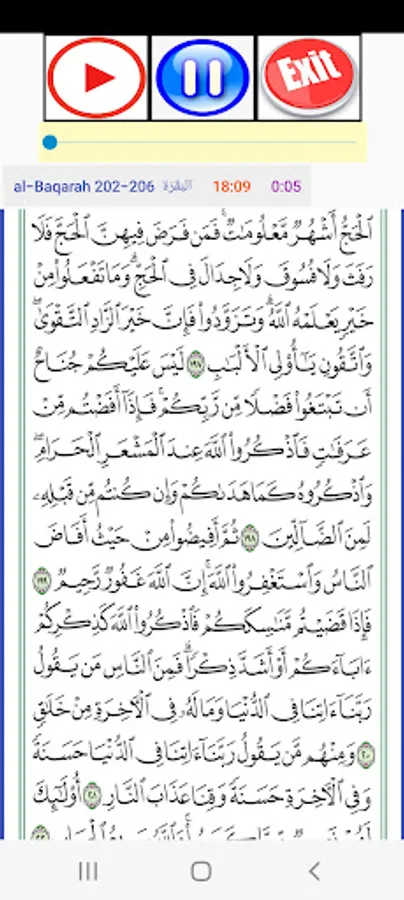 Exit
al-Baqarah 202-206 البقرة 18:09 0:05
ٱلْحَجُّ أَشْهُرٌ مَّعْلُومَٰتٌ ۚ فَمَن فَرَضَ فِيهِنَّ ٱلْحَجَّ فَلَا
رَفَثَ وَلَا فُسُوقَ وَلَا جِدَالَ فِى ٱلْحَجِّ ۗ وَمَا تَفْعَلُوا۟ مِنْ
خَيْرٍ يَعْلَمْهُ ٱللَّهُ ۗ وَتَزَوَّدُوا۟ فَإِنَّ خَيْرَ ٱلزَّادِ ٱلتَّقْوَىٰ ۚ
وَٱتَّقُونِ يَٰٓأُو۟لِى ٱلْأَلْبَٰبِ ١٩٧ لَيْسَ عَلَيْكُمْ جُنَاحٌ
أَن تَبْتَغُوا۟ فَضْلًا مِّن رَّبِّكُمْ ۚ فَإِذَآ أَفَضْتُم مِّنْ
عَرَفَٰتٍ فَٱذْكُرُوا۟ ٱللَّهَ عِندَ ٱلْمَشْعَرِ ٱلْحَرَامِ ۖ
وَٱذْكُرُوهُ كَمَا هَدَىٰكُمْ وَإِن كُنتُم مِّن قَبْلِهِۦ
لَمِنَ ٱلضَّآلِّينَ ١٩٨ ثُمَّ أَفِيضُوا۟ مِنْ حَيْثُ أَفَاضَ
ٱلنَّاسُ وَٱسْتَغْفِرُوا۟ ٱللَّهَ ۚ إِنَّ ٱللَّهَ غَفُورٌ رَّحِيمٌ ١٩٩
فَإِذَا قَضَيْتُم مَّنَٰسِكَكُمْ فَٱذْكُرُوا۟ ٱللَّهَ كَذِكْرِكُمْ
ءَابَآءَكُمْ أَوْ أَشَدَّ ذِكْرًا ۗ فَمِنَ ٱلنَّاسِ مَن يَقُولُ
رَبَّنَآ ءَاتِنَا فِى ٱلدُّنْيَا وَمَا لَهُۥ فِى ٱلْءَاخِرَةِ مِنْ خَلَٰقٍ
٢٠٠ وَمِنْهُم مَّن يَقُولُ رَبَّنَآ ءَاتِنَا فِى ٱلدُّنْيَا حَسَنَةً
وَفِى ٱلْءَاخِرَةِ حَسَنَةً وَقِنَا عَذَابَ ٱلنَّارِ ٢٠١ أُو۟لَٰٓئِكَ